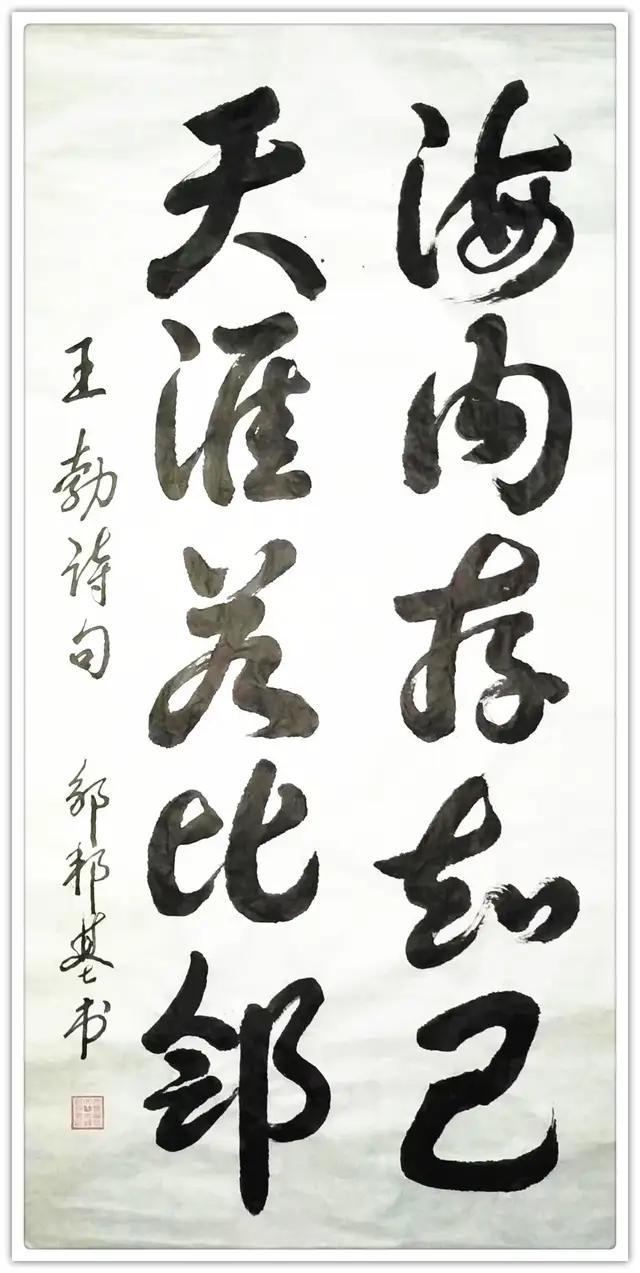 海内存知己
天涯若比邻
王勃诗句 邹邦基书